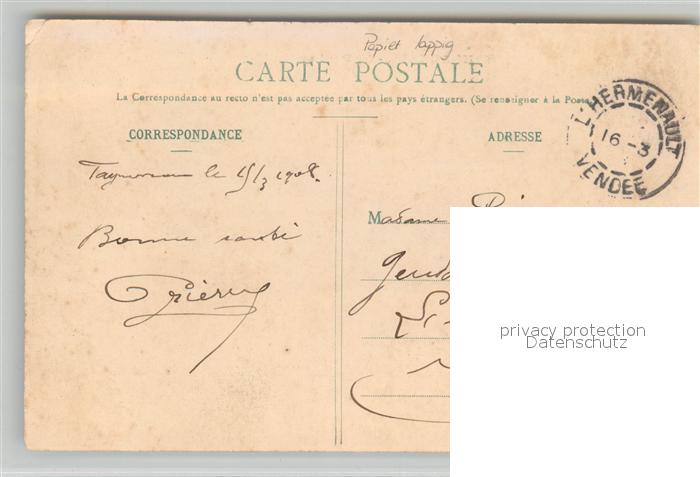 Papier lappig
CARTE POSTALE
La Correspondance au recto n'est pas acceptée par tous les pays étrangers. (Se renseigner à la Poste
L'HERMENAULT
16 -3
VENDÉE
CORRESPONDANCE
ADRESSE
le 15/3 1908.
Bonne santé
Madame
privacy protection
Datenschutz